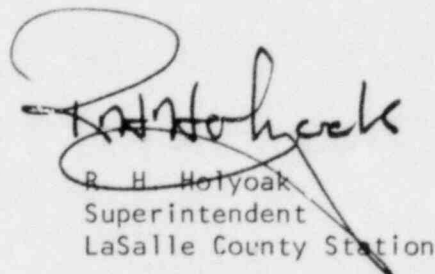 R H Holyoak
R. H. Holyoak
Superintendent
LaSalle County Station